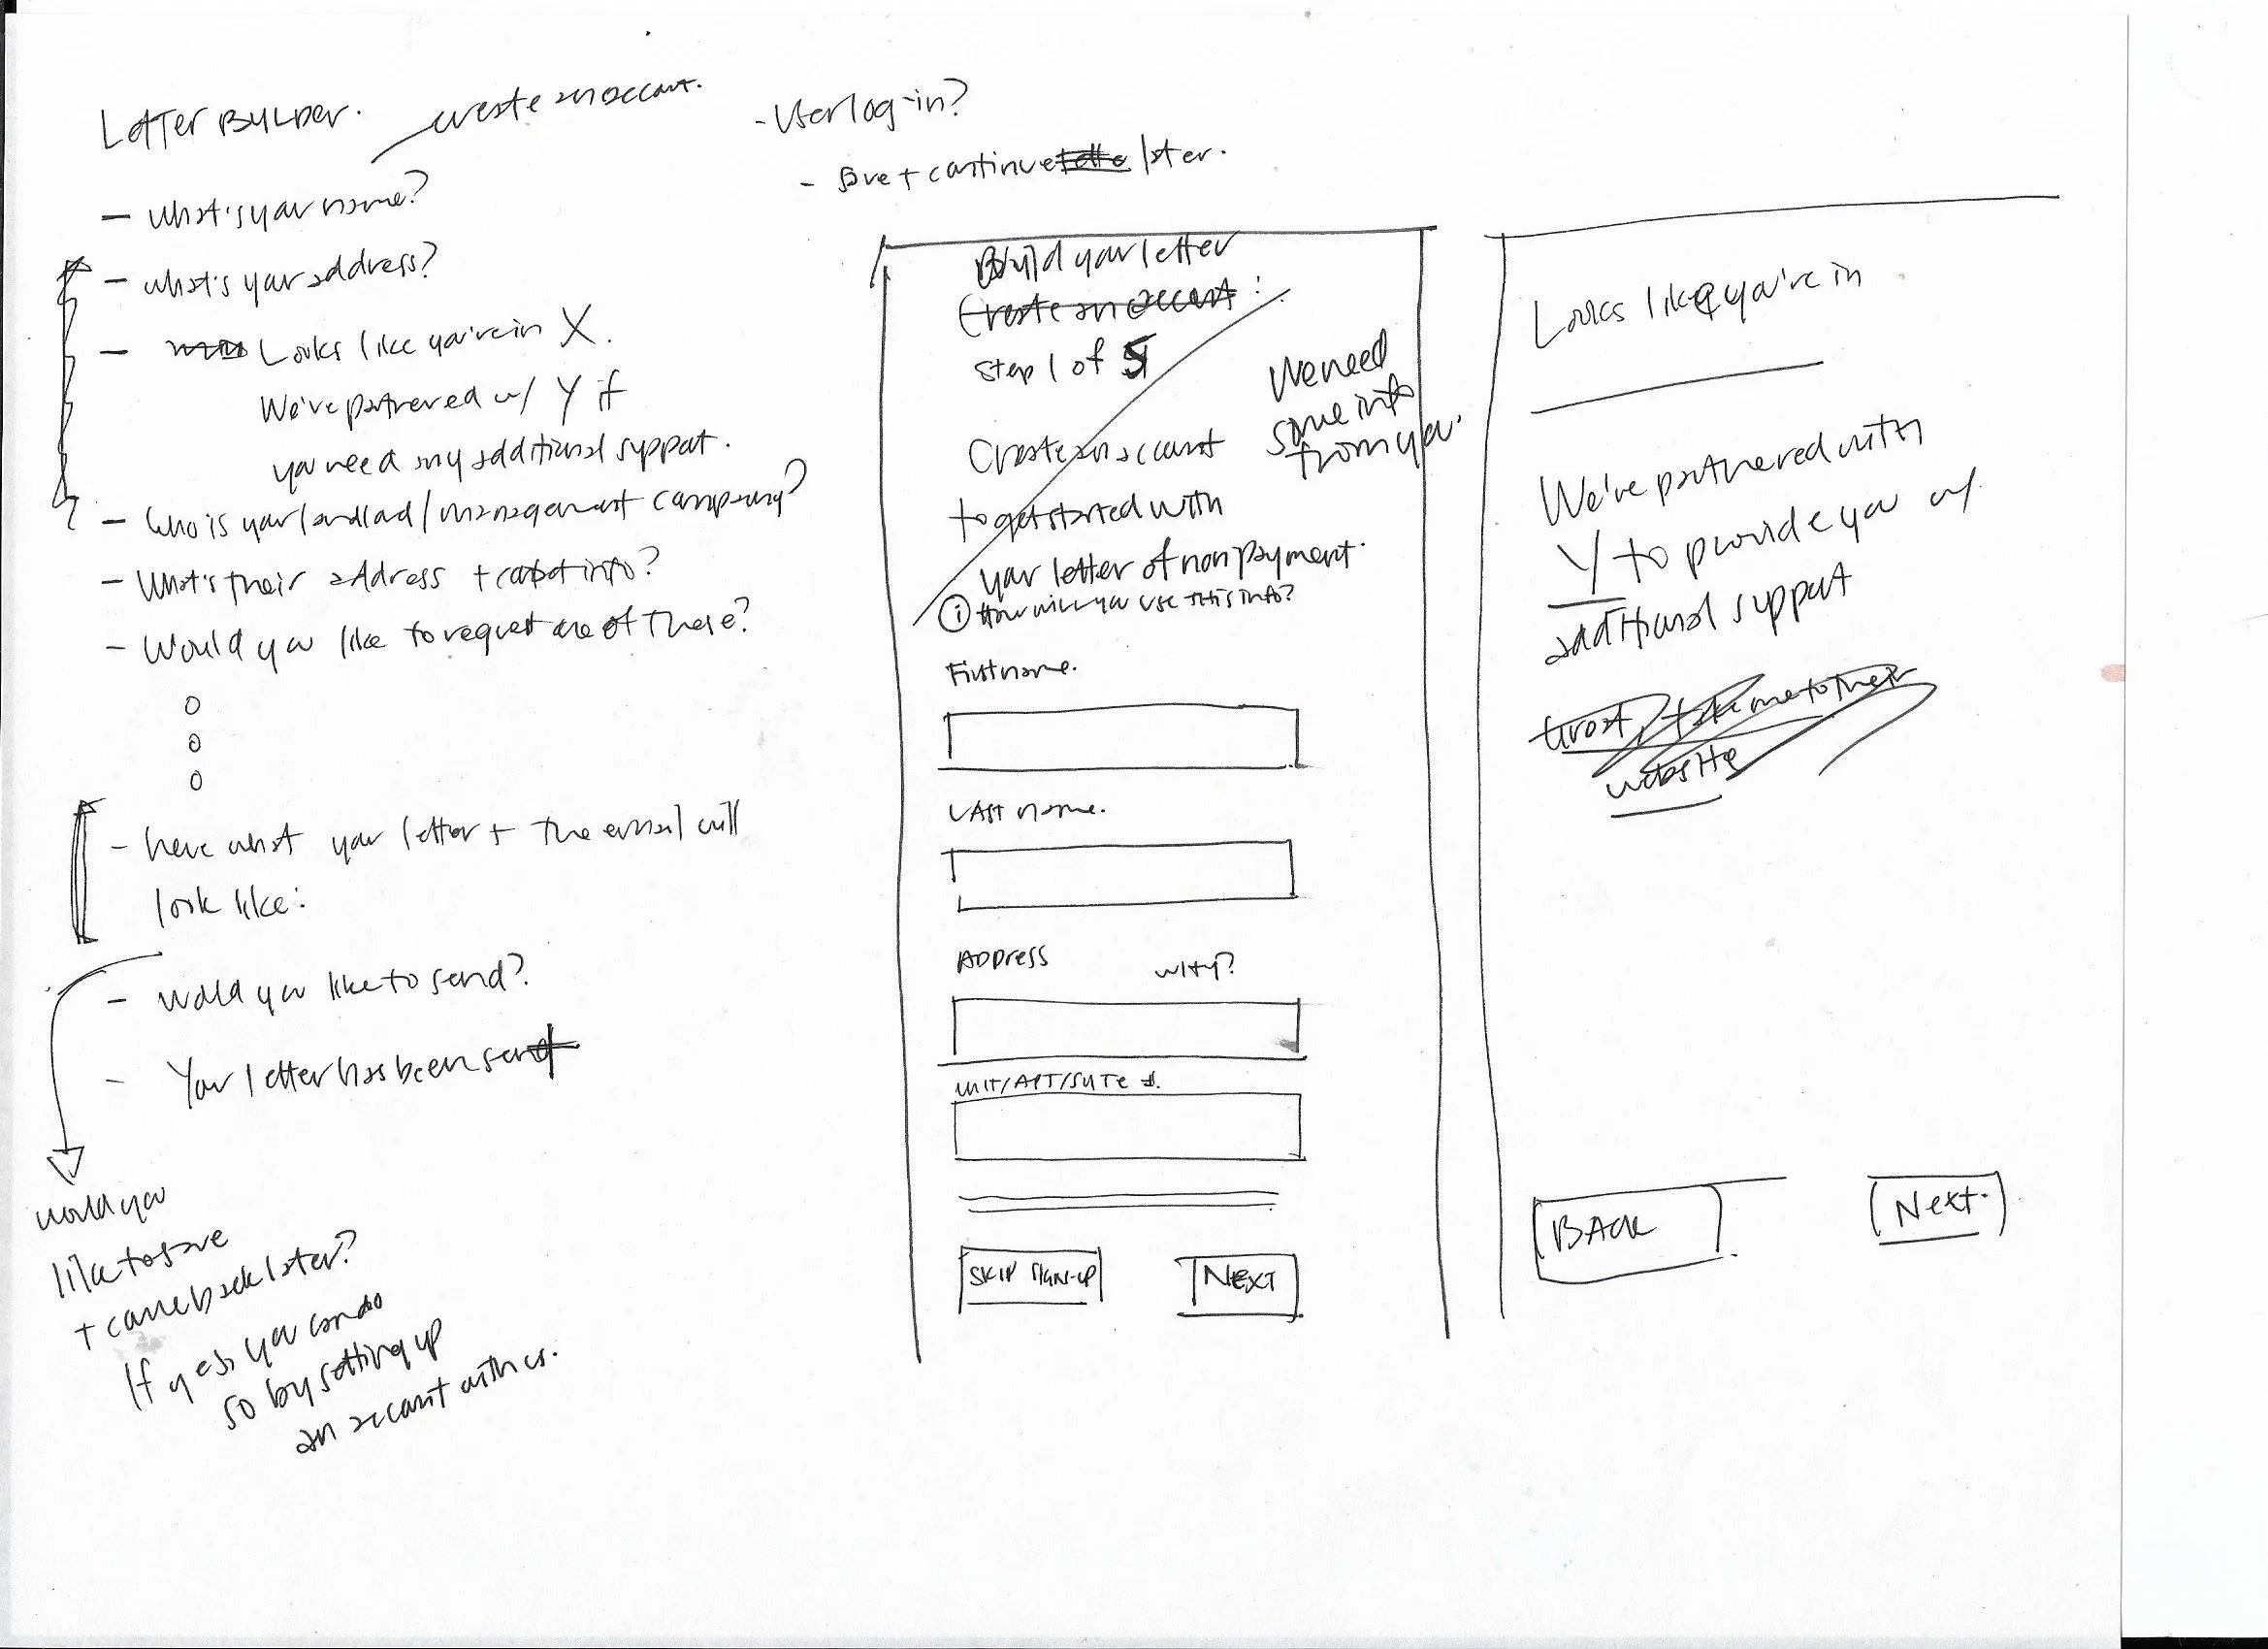 LETTER BUILDER.
create an account.
- What's your name?
- What's your address?
- Looks like you're in X.
We've partnered w/ Y if
you need any additional support.
- Who is your landlord/management company?
- What's their address + contact info?
- Would you like to request one of these?
- here what your letter + the email will
look like:
- would you like to send?
- Your letter has been sent
would you
like to save
+ come back later?
If yes, you can do
so by setting up
an account with us.
- User log-in?
- save + continue later.
Build your letter
Create an account:
Step 1 of 5
Create an account
to get started with
your letter of nonpayment.
We need
some info
from you.
i How will you use this info?
First name.
LAST name.
ADDRESS WHY?
UNIT/APT/SUITE #.
SKIP SIGN-UP
NEXT
Looks like you're in
We've partnered with
Y to provide you w/
additional support
take me to their
website
BACK
Next.